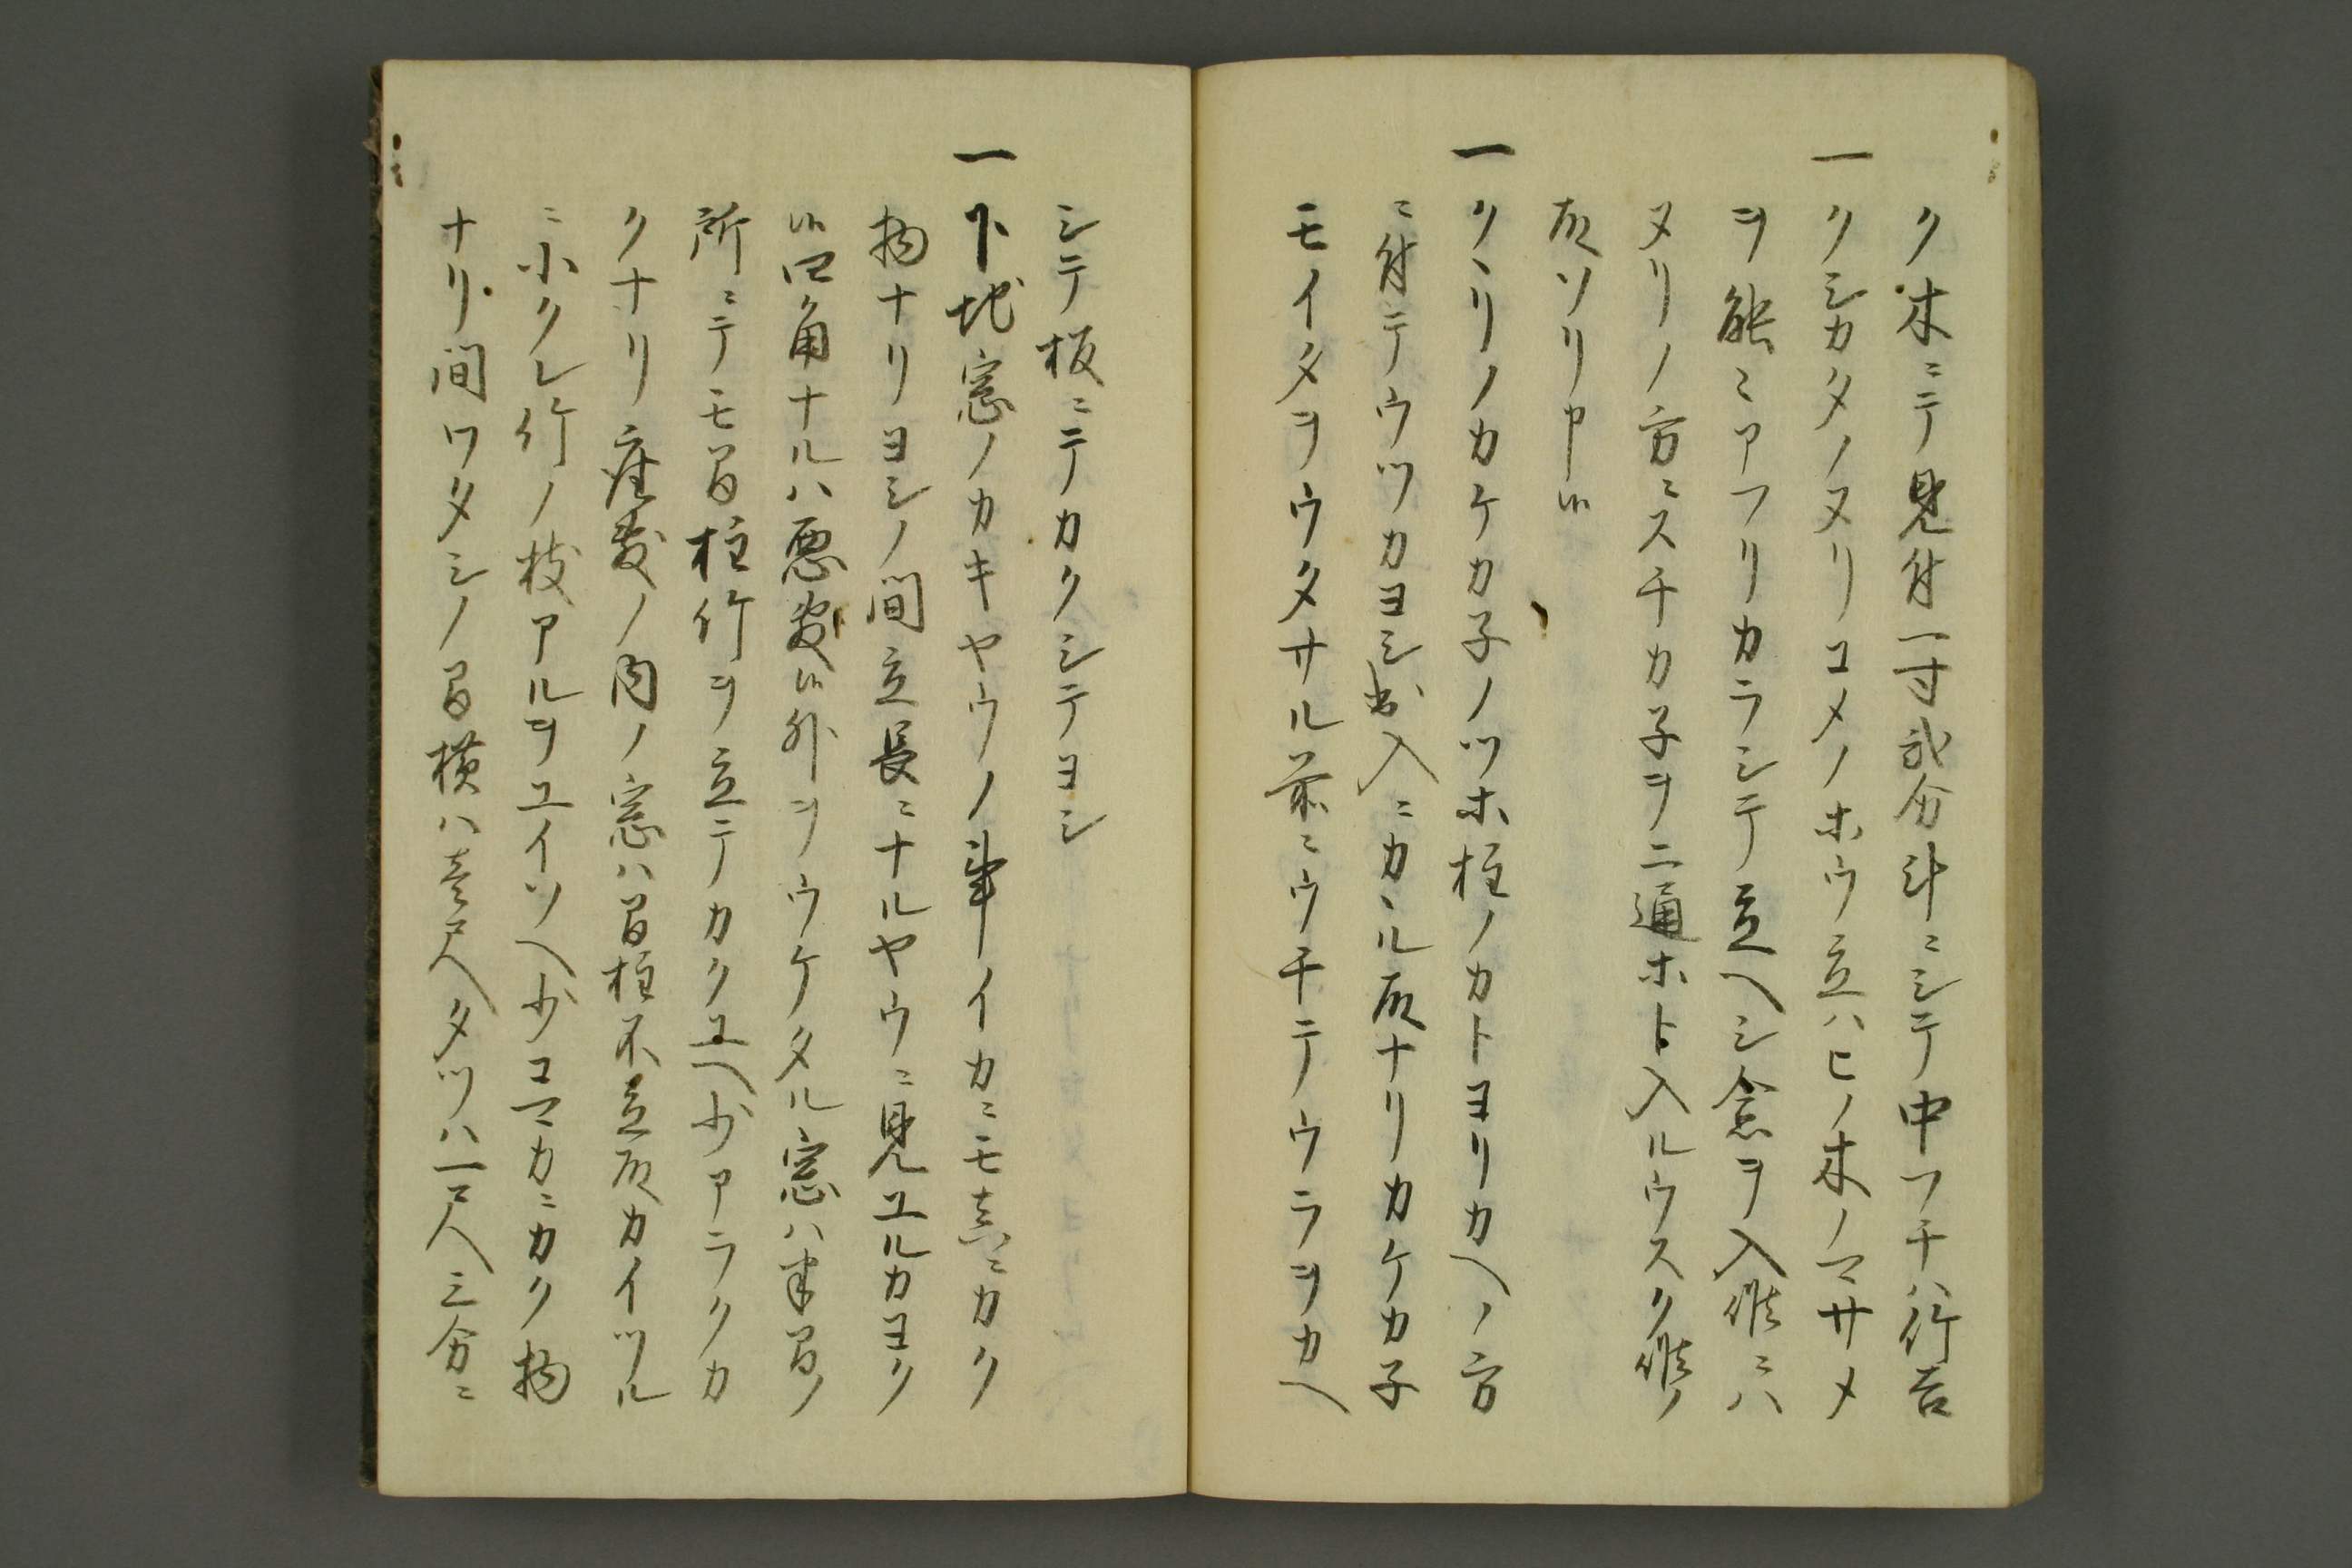 ク木ニテ見付一寸弐分斗ニシテ中フチハ竹吉
一クシカタノヌリコメノホウ立ハヒノ木ノマサメ
ヲ能ミアフリカラシテ立ヘシ念ヲ入候ニハ
ヌリノ方ニスチカ子ヲ二通ホト入ルウスク候ノ
故ソリ申候
一クヽリノカケカ子ノツホ柱ノカトヨリカヘノ方
ニ付テウツカヨシ出入ニカヽル故ナリカケカ子
モイタヲウタサル前ニウチテノウラヲカヘ
シテ板ニテカクシテヨシ
一下地窓ノカキヤウノ事イカニモ真ニカク
物ナリヨシノ間立長ニナルヤウニ見ユルカヨク
候四角ナルハ悪敷候外ヲウケタル窓ハ半間ノ
所ニテモ間柱竹ヲ立テカクユヘ少アラクカ
クナリ座敷ノ内ノ窓ハ間柱不立故カイツル
ニ小クレ竹ノ枝アルヲユイソヘ少コマカニカク物
ナリ間ワタシノ間横ハ壱尺タツハ一尺三分ニ